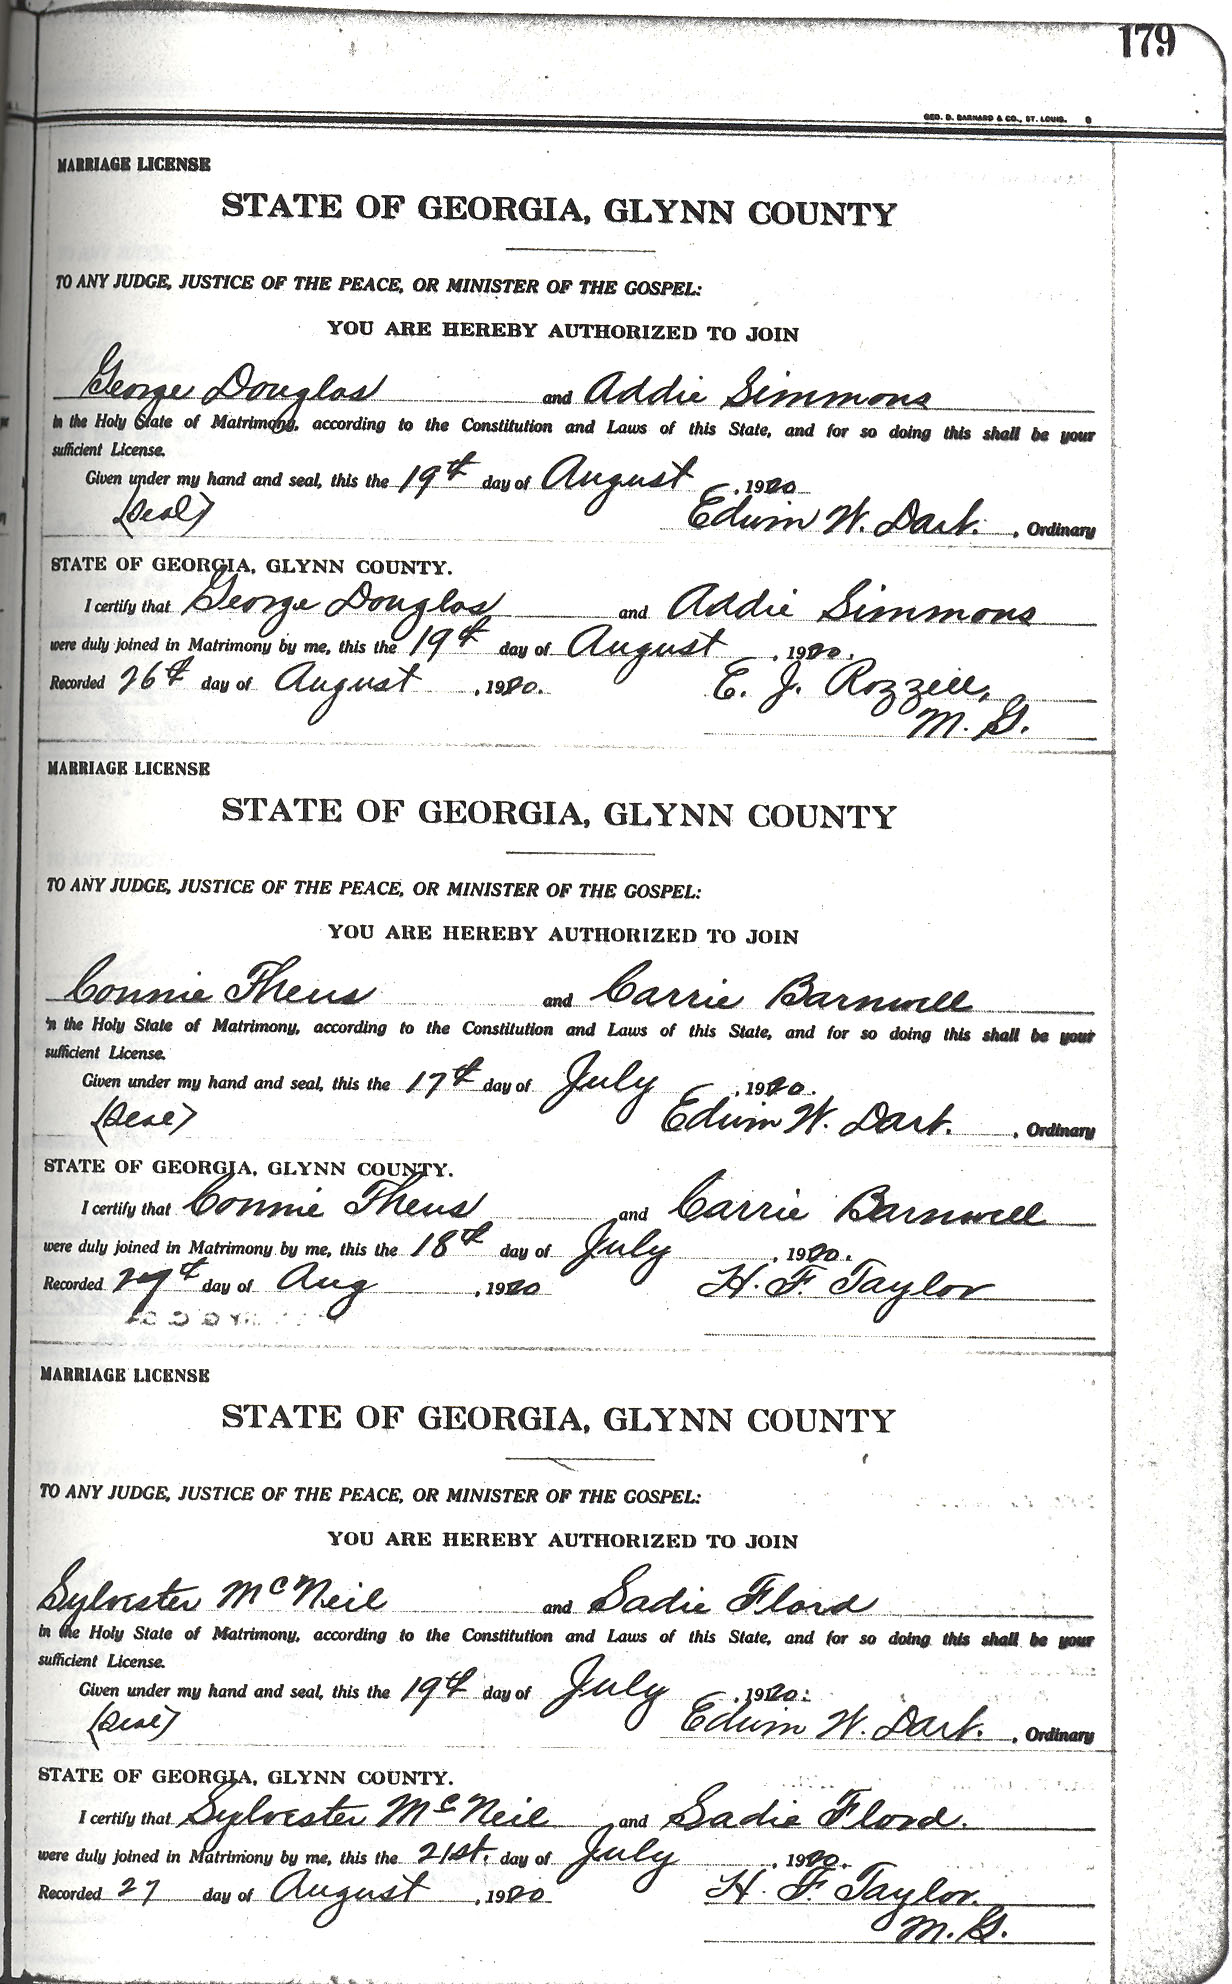 179
GEO. D. BARNARD & CO., ST. LOUIS.
MARRIAGE LICENSE
STATE OF GEORGIA, GLYNN COUNTY
TO ANY JUDGE, JUSTICE OF THE PEACE, OR MINISTER OF THE GOSPEL:
YOU ARE HEREBY AUTHORIZED TO JOIN
George Douglas and Addie Simmons
in the Holy State of Matrimony, according to the Constitution and Laws of this State, and for so doing this shall be your
sufficient License.
Given under my hand and seal, this the 19th day of August, 1920
(Seal) Edwin W. Dart., Ordinary
STATE OF GEORGIA, GLYNN COUNTY.
I certify that George Douglas and Addie Simmons
were duly joined in Matrimony by me, this the 19th day of August, 1920.
Recorded 26th day of August, 1920. E. J. Rozzell,
M. G.
MARRIAGE LICENSE
STATE OF GEORGIA, GLYNN COUNTY
TO ANY JUDGE, JUSTICE OF THE PEACE, OR MINISTER OF THE GOSPEL:
YOU ARE HEREBY AUTHORIZED TO JOIN
Connie Theus and Carrie Barnwell
in the Holy State of Matrimony, according to the Constitution and Laws of this State, and for so doing this shall be your
sufficient License.
Given under my hand and seal, this the 17th day of July, 1920.
(Seal) Edwin W. Dart., Ordinary
STATE OF GEORGIA, GLYNN COUNTY.
I certify that Connie Theus and Carrie Barnwell
were duly joined in Matrimony by me, this the 18th day of July, 1920.
Recorded 27th day of Aug, 1920 H. F. Taylor
MARRIAGE LICENSE
STATE OF GEORGIA, GLYNN COUNTY
TO ANY JUDGE, JUSTICE OF THE PEACE, OR MINISTER OF THE GOSPEL:
YOU ARE HEREBY AUTHORIZED TO JOIN
Sylvester McNeil and Sadie Flord
in the Holy State of Matrimony, according to the Constitution and Laws of this State, and for so doing this shall be your
sufficient License.
Given under my hand and seal, this the 19th day of July, 1920.
(Seal) Edwin W. Dart., Ordinary
STATE OF GEORGIA, GLYNN COUNTY.
I certify that Sylvester McNeil and Sadie Flord.
were duly joined in Matrimony by me, this the 21st. day of July, 1920.
Recorded 27 day of August, 1920 H. F. Taylor.
M. G.